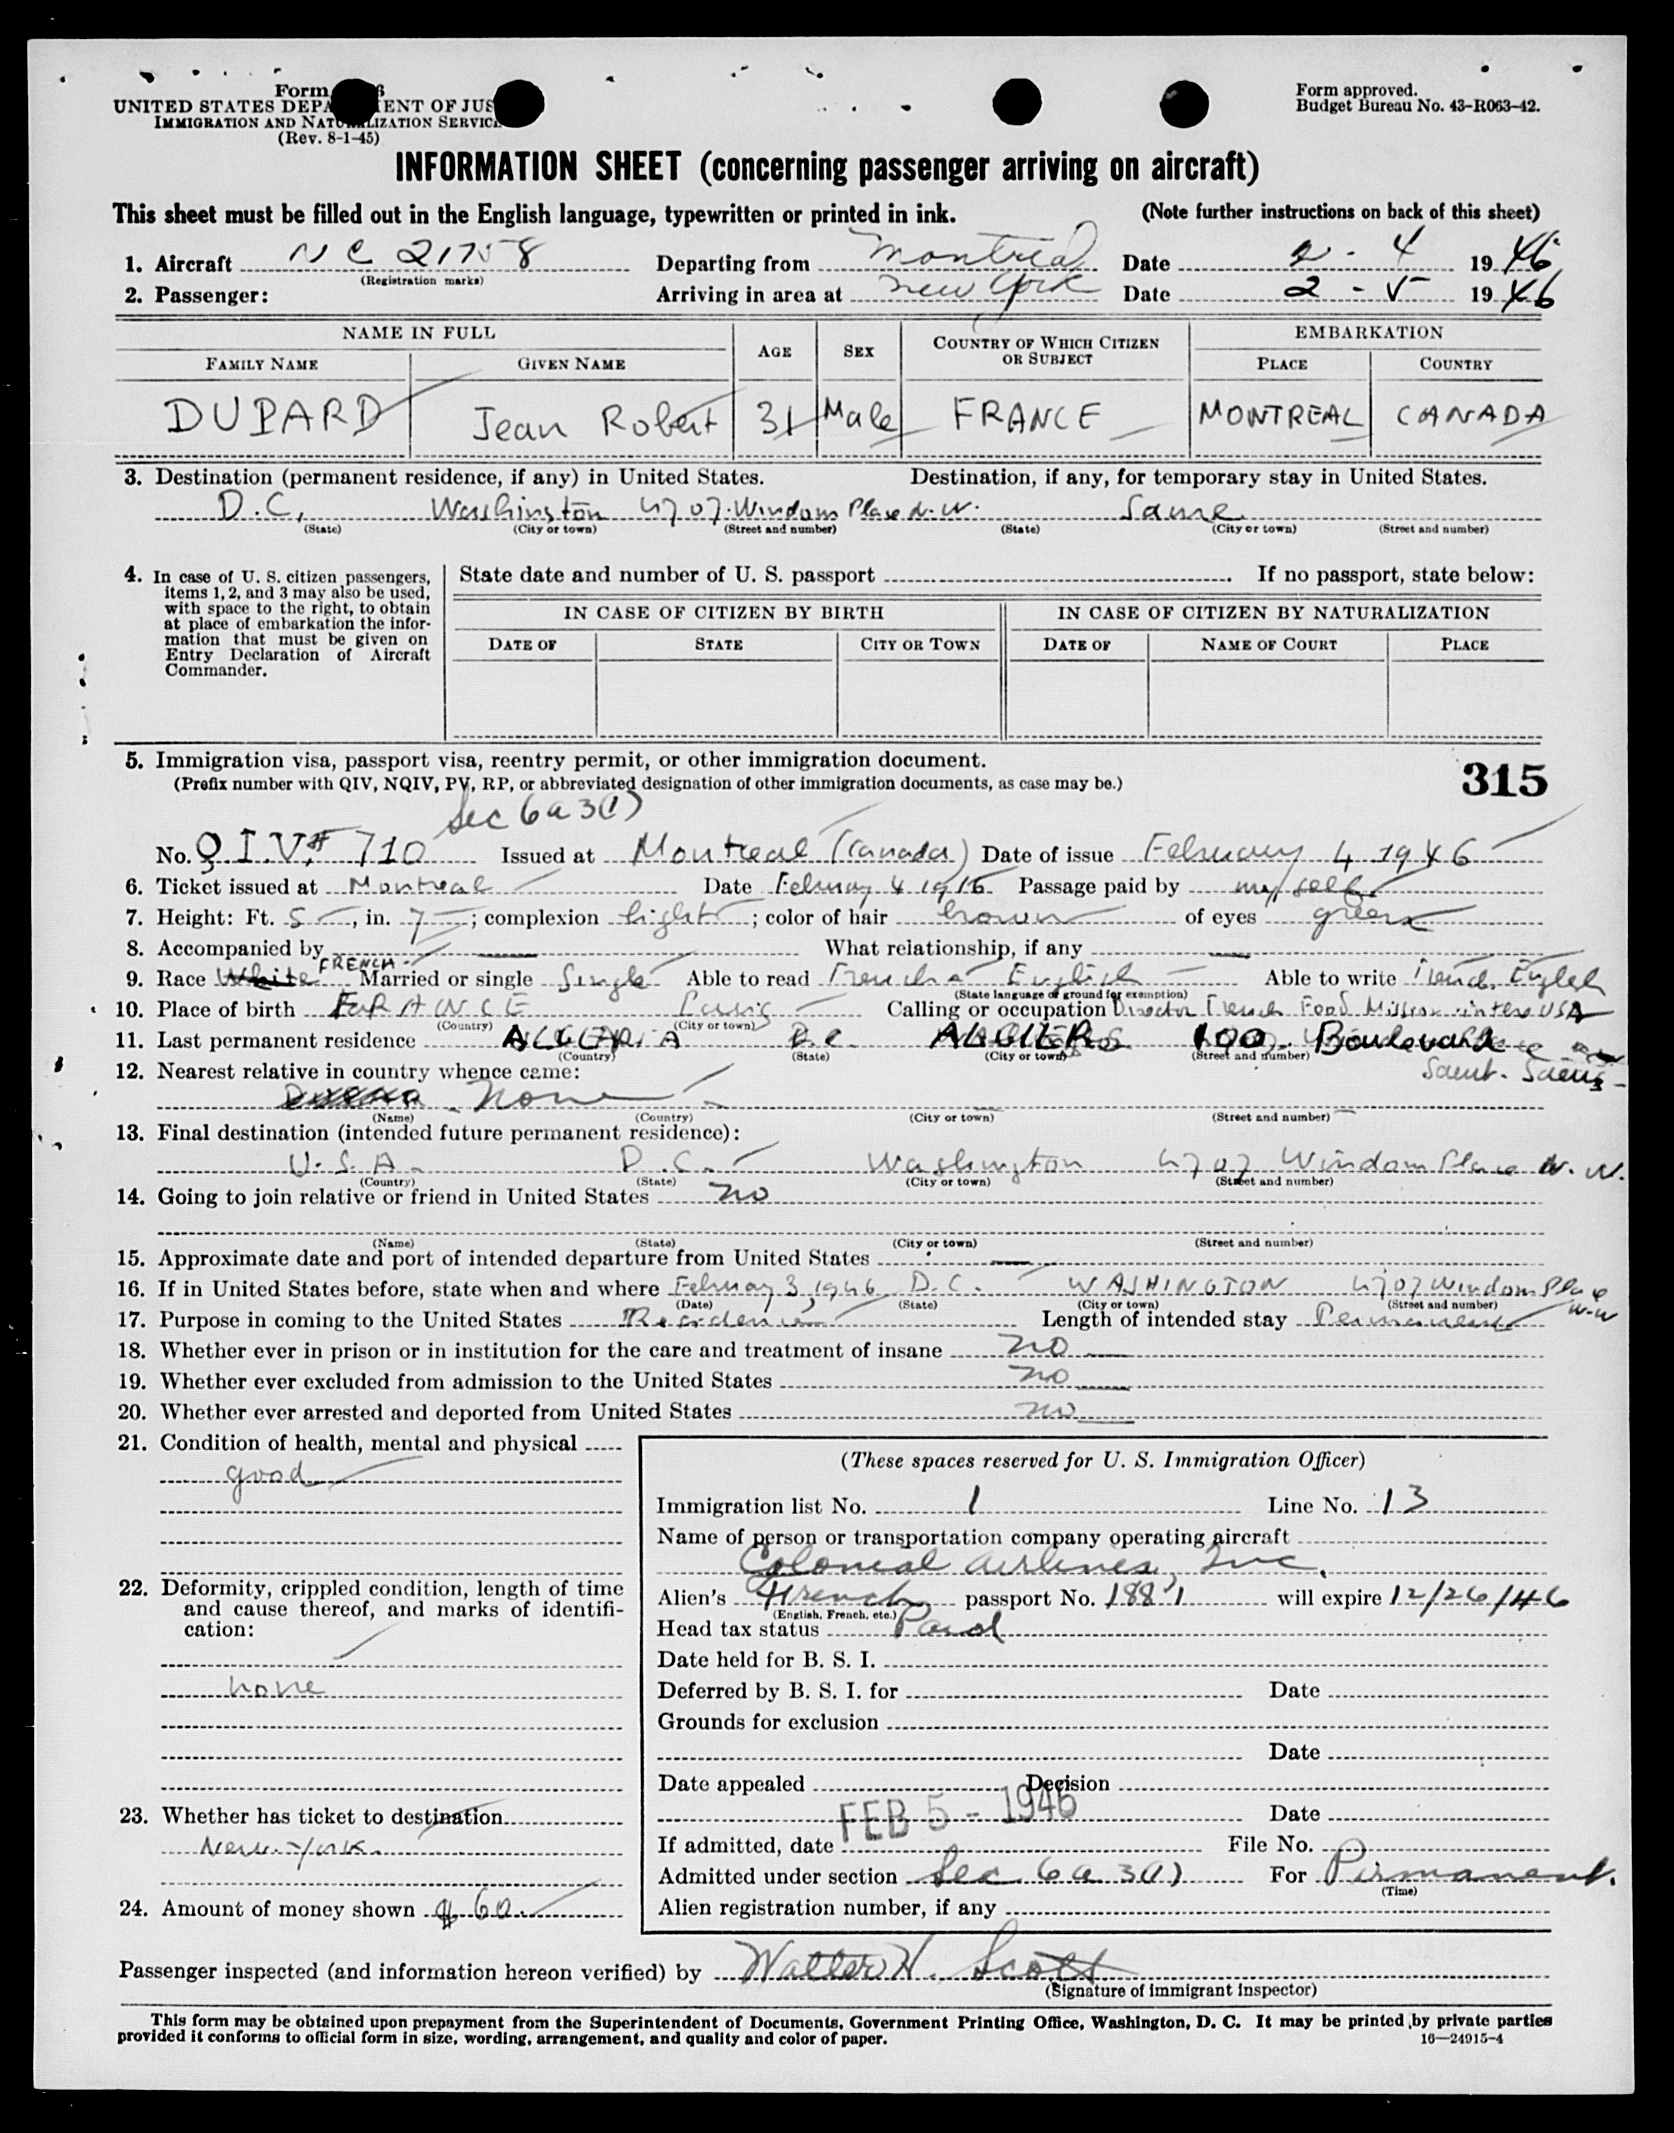 Form
UNITED STATES DEPA ENT OF JUS
IMMIGRATION AND NATURALIZATION SERVICE
(Rev. 8-1-45)
Form approved.
Budget Bureau No. 43-R063-42.
INFORMATION SHEET (concerning passenger arriving on aircraft)
This sheet must be filled out in the English language, typewritten or printed in ink. (Note further instructions on back of this sheet)
1. Aircraft NC 21758 Departing from Montreal Date 2 - 4 1946
(Registration marks)
2. Passenger: Arriving in area at New York Date 2 - 5 1946
NAME IN FULL AGE SEX COUNTRY OF WHICH CITIZEN OR SUBJECT EMBARKATION
FAMILY NAME GIVEN NAME PLACE COUNTRY
DUPARD Jean Robert 31 Male FRANCE MONTREAL CANADA
3. Destination (permanent residence, if any) in United States. Destination, if any, for temporary stay in United States.
D.C. Washington 4707 Windom Place N.W. Same
(State) (City or town) (Street and number) (State) (City or town) (Street and number)
4. In case of U. S. citizen passengers, items 1, 2, and 3 may also be used, with space to the right, to obtain at place of embarkation the information that must be given on Entry Declaration of Aircraft Commander.
State date and number of U. S. passport If no passport, state below:
IN CASE OF CITIZEN BY BIRTH IN CASE OF CITIZEN BY NATURALIZATION
DATE OF STATE CITY OR TOWN DATE OF NAME OF COURT PLACE
5. Immigration visa, passport visa, reentry permit, or other immigration document.
(Prefix number with QIV, NQIV, PV, RP, or abbreviated designation of other immigration documents, as case may be.)
315
Sec 6a3(1)
No. Q.I.V.# 710 Issued at Montreal (Canada) Date of issue February 4 1946
6. Ticket issued at Montreal Date February 4 1946 Passage paid by myself
7. Height: Ft. 5, in. 7; complexion light; color of hair brown of eyes green
8. Accompanied by What relationship, if any
9. Race White FRENCH Married or single Single Able to read French English Able to write French English
(State language or ground for exemption)
10. Place of birth FRANCE Paris Calling or occupation Director French Food Mission in the USA
(Country) (City or town)
11. Last permanent residence ALGERIA ALGIER 100 Boulevard
(Country) (State) (City or town) (Street and number)
Saint-Saens
12. Nearest relative in country whence came:
None
(Name) (Country) (City or town) (Street and number)
13. Final destination (intended future permanent residence):
U.S.A. D.C. Washington 4707 Windom Place N.W.
(Country) (State) (City or town) (Street and number)
14. Going to join relative or friend in United States no
(Name) (State) (City or town) (Street and number)
15. Approximate date and port of intended departure from United States
16. If in United States before, state when and where February 3, 1946 D.C. WASHINGTON 4707 Windom Place N.W
(Date) (State) (City or town) (Street and number)
17. Purpose in coming to the United States Residence Length of intended stay Permanent
18. Whether ever in prison or in institution for the care and treatment of insane no
19. Whether ever excluded from admission to the United States no
20. Whether ever arrested and deported from United States no
21. Condition of health, mental and physical
good
22. Deformity, crippled condition, length of time and cause thereof, and marks of identification:
none
23. Whether has ticket to destination
New-York.
24. Amount of money shown $ 60.
(These spaces reserved for U. S. Immigration Officer)
Immigration list No. 1 Line No. 13
Name of person or transportation company operating aircraft
Colonial Airlines, Inc.
Alien's French passport No. 1881 will expire 12/26/46
(English, French, etc.)
Head tax status Paid
Date held for B. S. I.
Deferred by B. S. I. for Date
Grounds for exclusion
Date
Date appealed Decision
Date
FEB 5 - 1946
If admitted, date File No.
Admitted under section Sec 6a 3(1) For Permanent.
(Time)
Alien registration number, if any
Passenger inspected (and information hereon verified) by Walter H. Scott
(Signature of immigrant inspector)
This form may be obtained upon prepayment from the Superintendent of Documents, Government Printing Office, Washington, D. C. It may be printed by private parties
provided it conforms to official form in size, wording, arrangement, and quality and color of paper.
16—24915-4